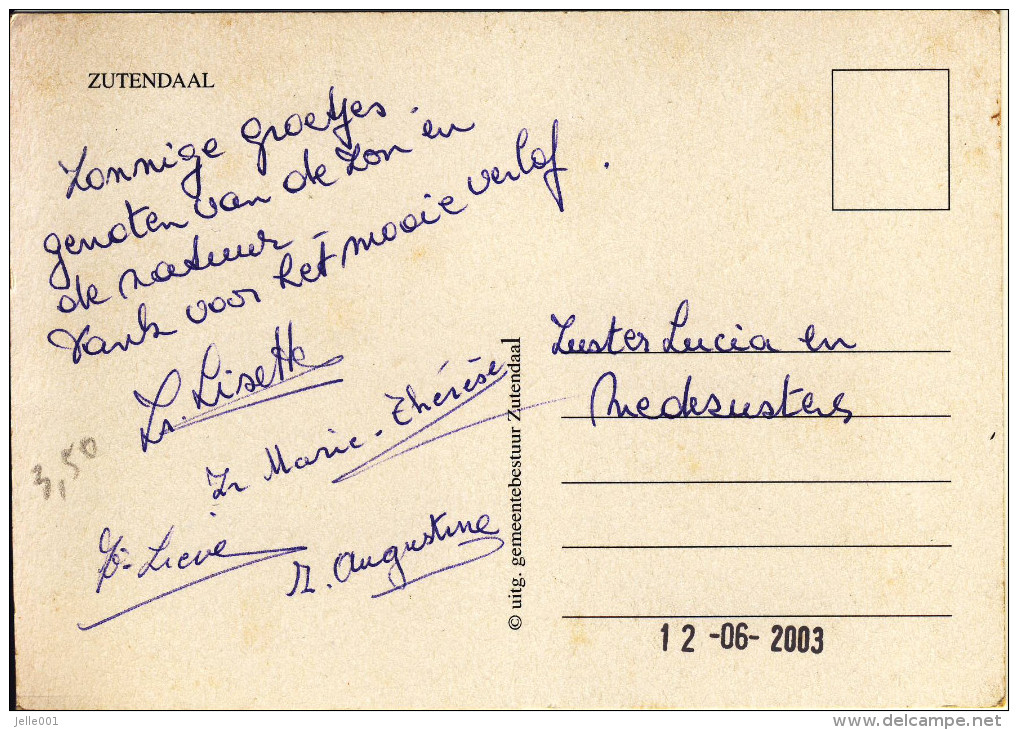 ZUTENDAAL
Zonnige groetjes.
genoten van de zon en
de natuur -
Dank voor het mooie verlof.
Zr. Lisette
Zr Marie-Thérèse
Zr. Lieve
Z. Augustine
3,50
© uitg. gemeentebestuur Zutendaal
Zuster Lucia en
Medezusters
12-06-2003
jelle001
www.delcampe.net